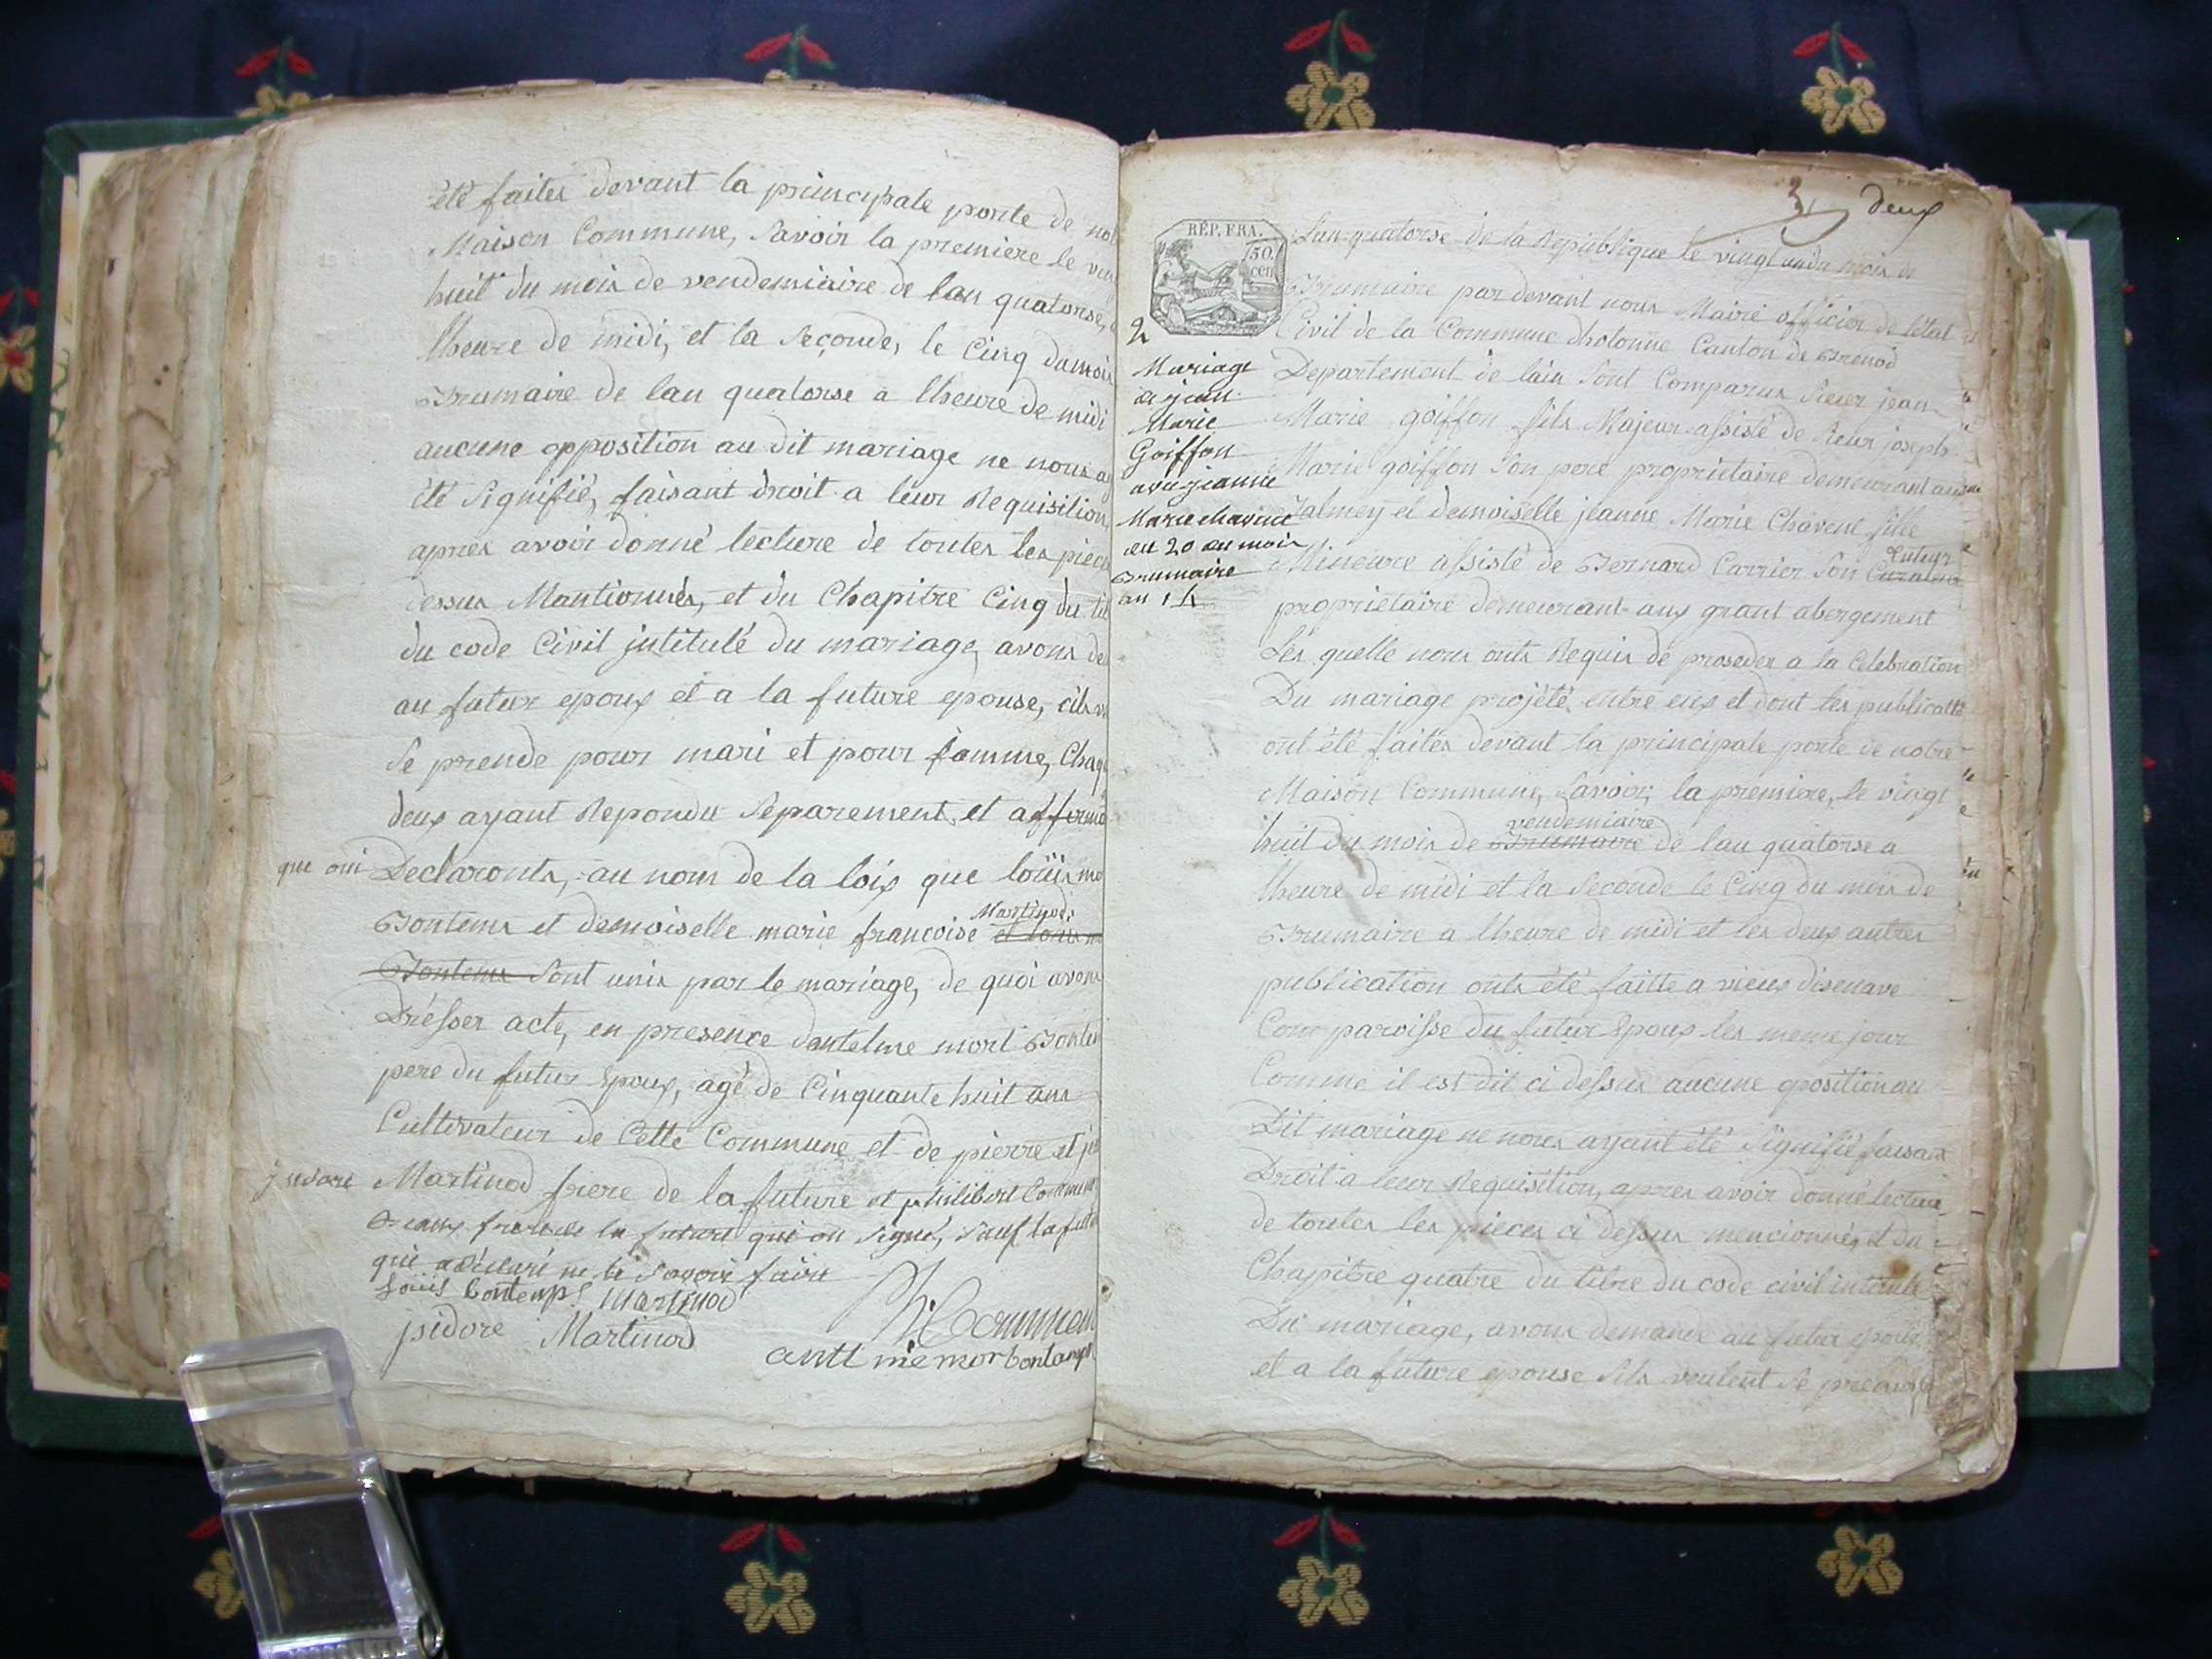 été faites devant la principale porte de
Maison Commune, Savoir la premiere le
huit du mois de vendemiaire de lan quatorse,
lheure de midi, et la Seçonde, le Cinq du mois
Brumaire de lan quatorse a lheure de midi
aucune opposition au dit mariage ne nous
été Signifié, faisant droit a leur Requisition,
apres avoir donné lecture de toutes les
dessus Mantionnés, et du Chapitre Cinq du
du code Civil jntitulé du mariage, avons
au futur epoux et a la future epouse,
Se prende pour mari et pour famme,
deux ayant Repondu Séparement, et affirmé
que oui Declaronts, au nom de la loix que loüis
Martinod
Bontems et demoiselle marie francoise et louis
Bontems Sont unis par le mariage, de quoi avons
Drésser acte, en presence dantelme mort
pere du futur Epoux, agé de Cinquante huit ans
Cultivateur de Cette Commune et de pierre et
Martinod frere de la future et philibert
frere de la future qui on Signé, Sauf la
qui a déclaré ne le Savoir faire
Loüis bontemps Martinod
psidore Martinod
mor bontemps
3 deux
RÉP. FRA.
50
cen
Lan quatorse de la Republique le vingt du mois de
Brumaire par devant nous Maire officier de létat
Civil de la Commune dhotonne Canton de Brenod
Departement de lain Sont Comparus Sieur jean
Marie goiffon fils Majeur assisté de Sieur joseph
Marie goiffon Son pere proprietaire demeurant
et demoiselle jeanne Marie Chavent fille
tuteur
Mineure assisté de Bernard Carrier Son Curateur
proprietaire demeurant aux grant abergement
Lés quelle nous onts Requis de proseder a la Celebration
Du mariage projété entre eux et dont les
ont été faites devant la principale porte de notre
Maison Commune, Savoir, la premiere, le vingt
vendemiaire
huit du mois de Brumaire de lan quatorse a
lheure de midi et la Seconde le Cinq du mois de
Brumaire a lheure de midi et les deux autres
publication onts été faitte a vieux
paroisse du futur Epoux les meme jour
Comme il est dit ci dessus aucune oposition au
Dit mariage ne nous ayant été Signifié faisant
Droit a leur Requisition, apres avoir donné lecture
de toutes les pieces ci dessus mencionnés et du
Chapitre quatre du titre du code civil
Du mariage, avons demandé au futur epoux
et a la future epouse Sils veulent Se
2
Mariage
jean
Marie
Goiffon
jeanne
Marie
du 20 du mois
Brumaire
an 14